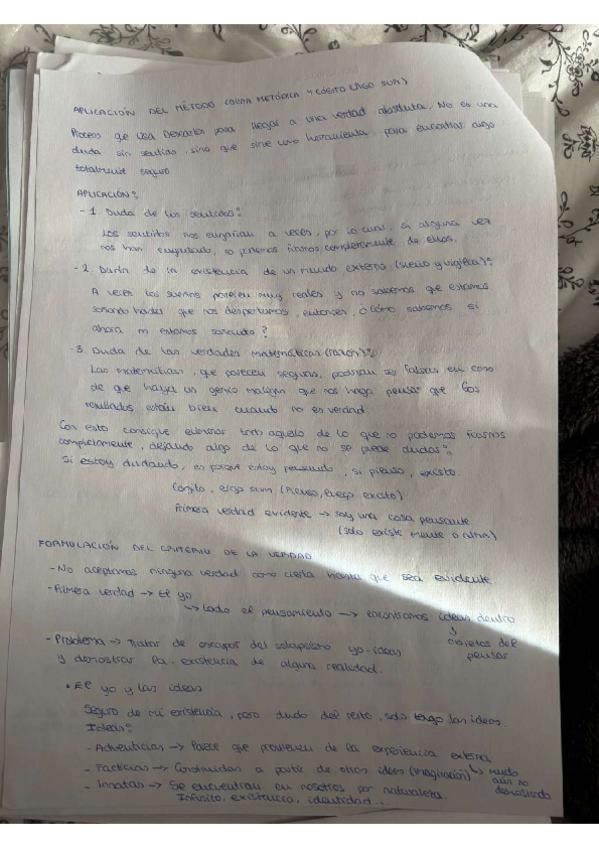 APLICACIÓN DEL MÉTODO (DUDA METÓDICA Y COGITO ERGO SUM)
Proceso que usa Descartes para llegar a una verdad absoluta. No es una
duda sin sentido, sino que sirve como herramienta para encontrar algo
totalmente seguro
APLICACIÓN:
- 1. Duda de los sentidos:
Los sentidos nos engañan a veces, por lo cual, si alguna vez
nos han engañado, no podemos fiarnos completamente de ellos.
- 2. Duda de la existencia de un mundo externo (sueño y vigilia):
A veces los sueños parecen muy reales y no sabemos que estamos
soñando hasta que nos despertamos, entonces, ¿Cómo sabemos si
ahora no estamos soñando?
- 3. Duda de las verdades matemáticas (razón):
Las matemáticas, que parecen seguras, podrían ser falsas en caso
de que haya un genio maligno que nos haga pensar que los
resultados están bien cuando no es verdad.
Con esto consigue eliminar todo aquello de lo que no podemos fiarnos
completamente, dejando algo de lo que no se puede dudar:
Si estoy dudando, es porque estoy pensando, si pienso, existo.
Cogito, ergo sum (Pienso, luego existo)
Primera verdad evidente → soy una cosa pensante
(solo existe mente o alma)
FORMULACIÓN DEL CRITERIO DE LA VERDAD
- No aceptamos ninguna verdad como cierta hasta que sea evidente.
- Primera verdad → El yo
↳ todo el pensamiento → encontramos ideas dentro
↓
objetos del
pensar
- Problema → Tratar de escapar del solipsismo yo-ideas
y demostrar la existencia de alguna realidad.
• El yo y las ideas
Seguro de mi existencia, pero dudo del resto, solo tengo las ideas.
Ideas:
- Adventicias → Parece que provienen de la experiencia externa
↳ mundo
aún no
demostrado
- Facticias → Construidas a partir de otras ideas (imaginación)
- Innatas → Se encuentran en nosotros por naturaleza.
Infinito, existencia, identidad...